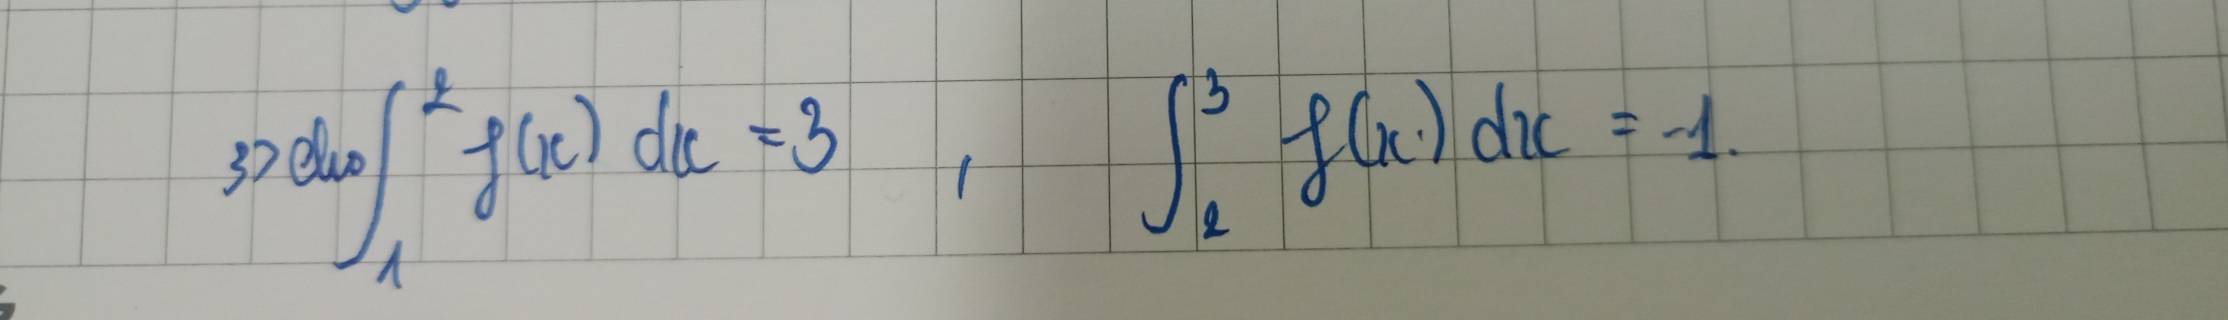 3> Cho ∫₁² f(x) dx = 3 , ∫₂³ f(x) dx = -1.